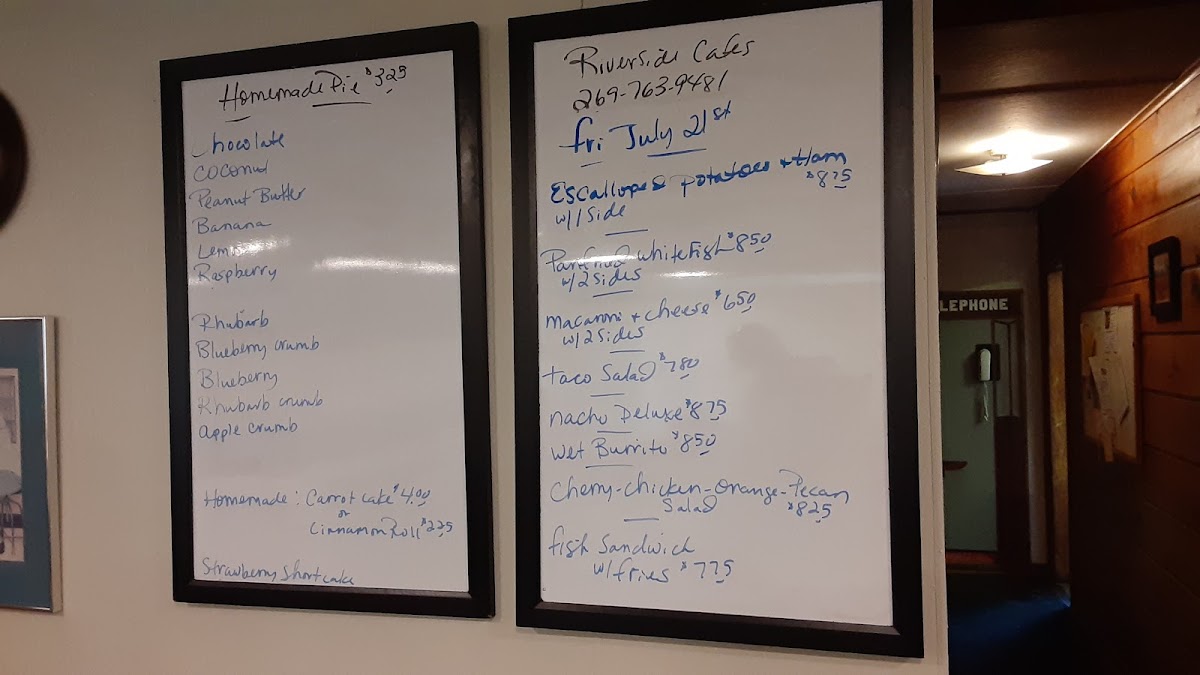 Homemade Pie $3.25
Chocolate
Coconut
Peanut Butter
Banana
Lemon
Raspberry
Rhubarb
Blueberry crumb
Blueberry
Rhubarb crumb
apple crumb
Homemade: Carrot cake $4.00
or
Cinnamon Roll $2.25
Strawberry Shortcake
Riverside Cafes
269-763-9481
fri July 21st
Escalloped potatoes + Ham
$8.75
w/1 side
Panfried Whitefish $8.50
w/2 sides
macaroni + cheese $6.50
w/2 sides
taco Salad $7.80
nacho Deluxe $8.75
wet Burrito $8.50
Cherry-chicken-Orange-Pecan
Salad $8.25
fish Sandwich
w/fries $7.75
LEPHONE